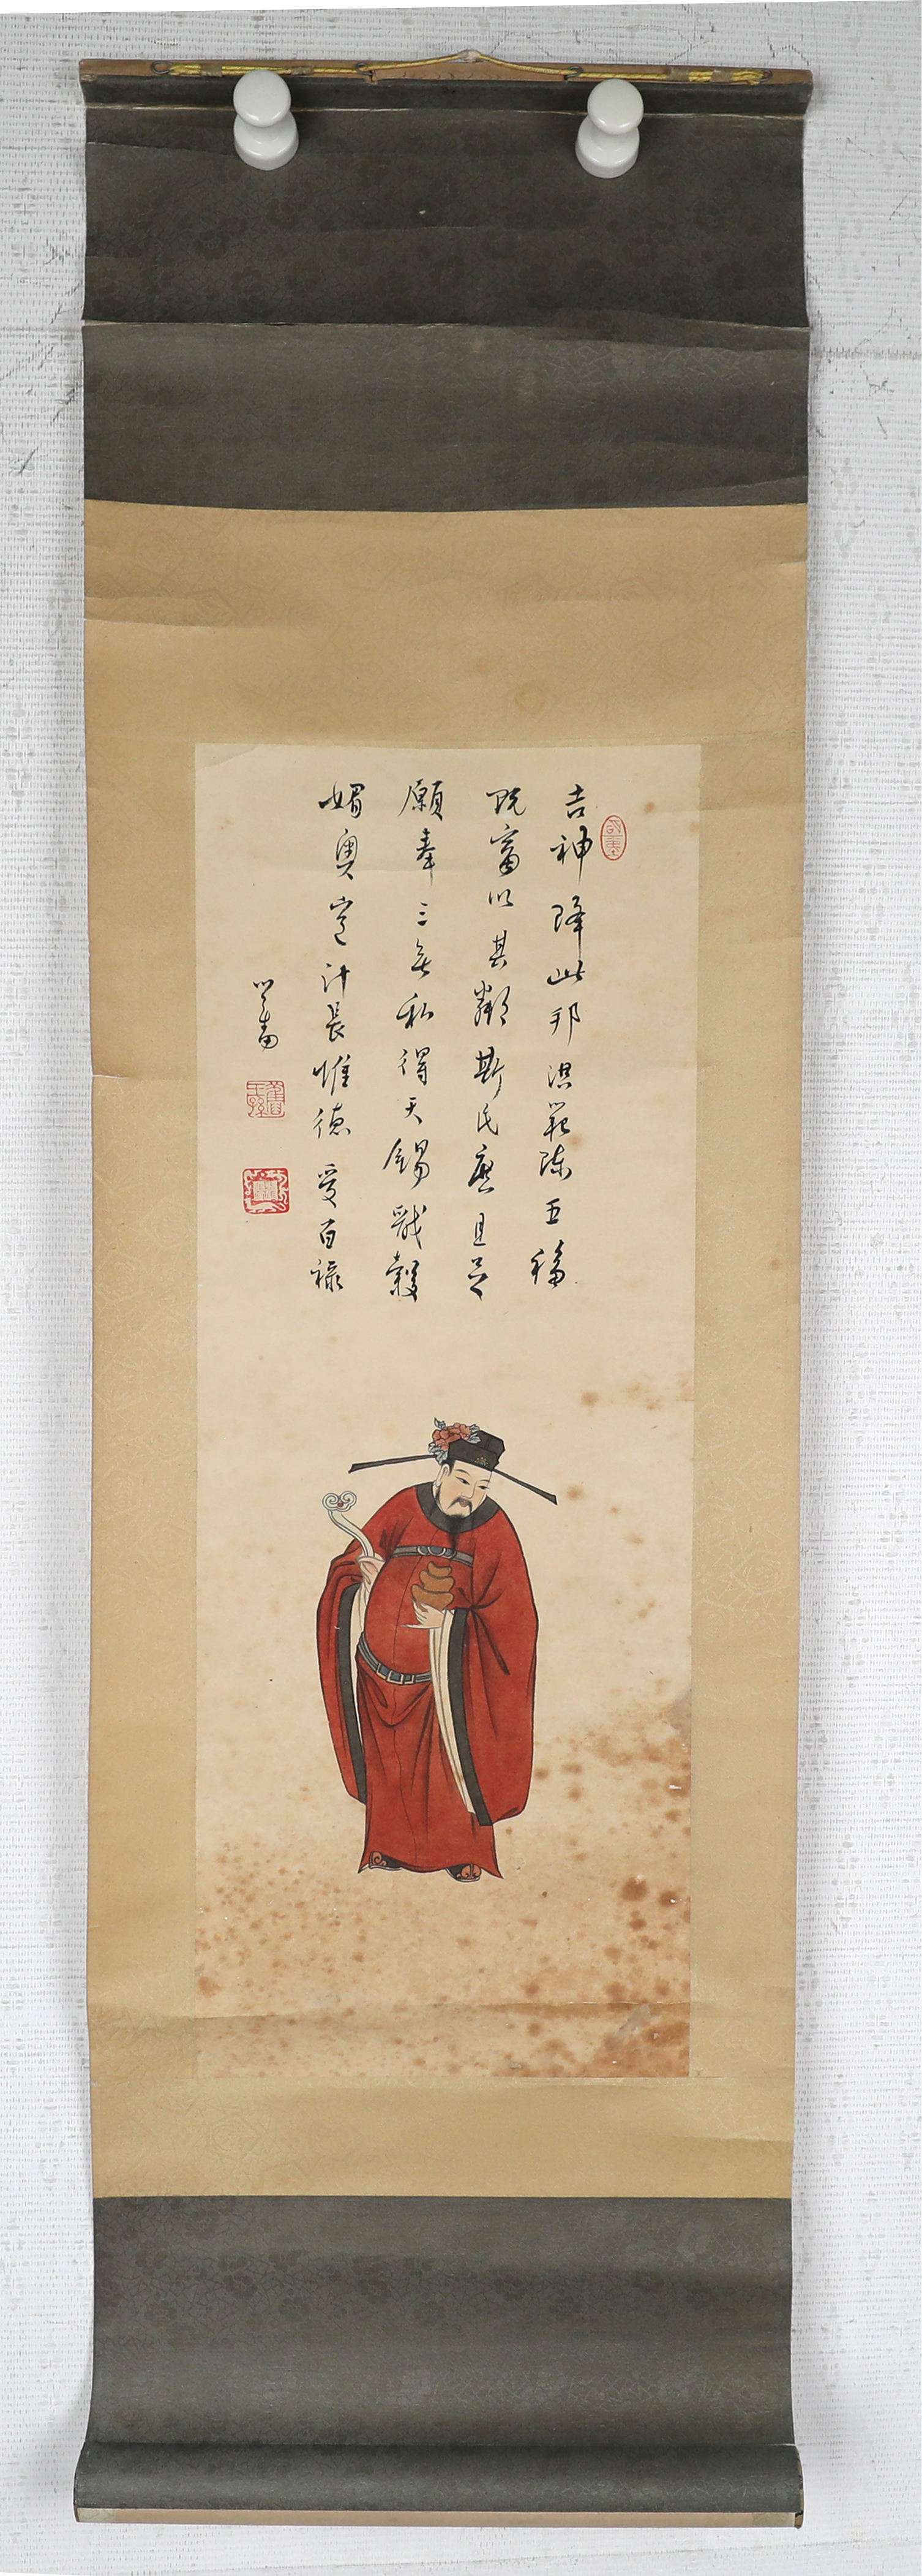 吉神降此邦洪範陳五福
既富以其鄰斯民庶且足
願奉三無私得天錫戩穀
媚奧豈計長惟德受百祿
心畬
舊王孫